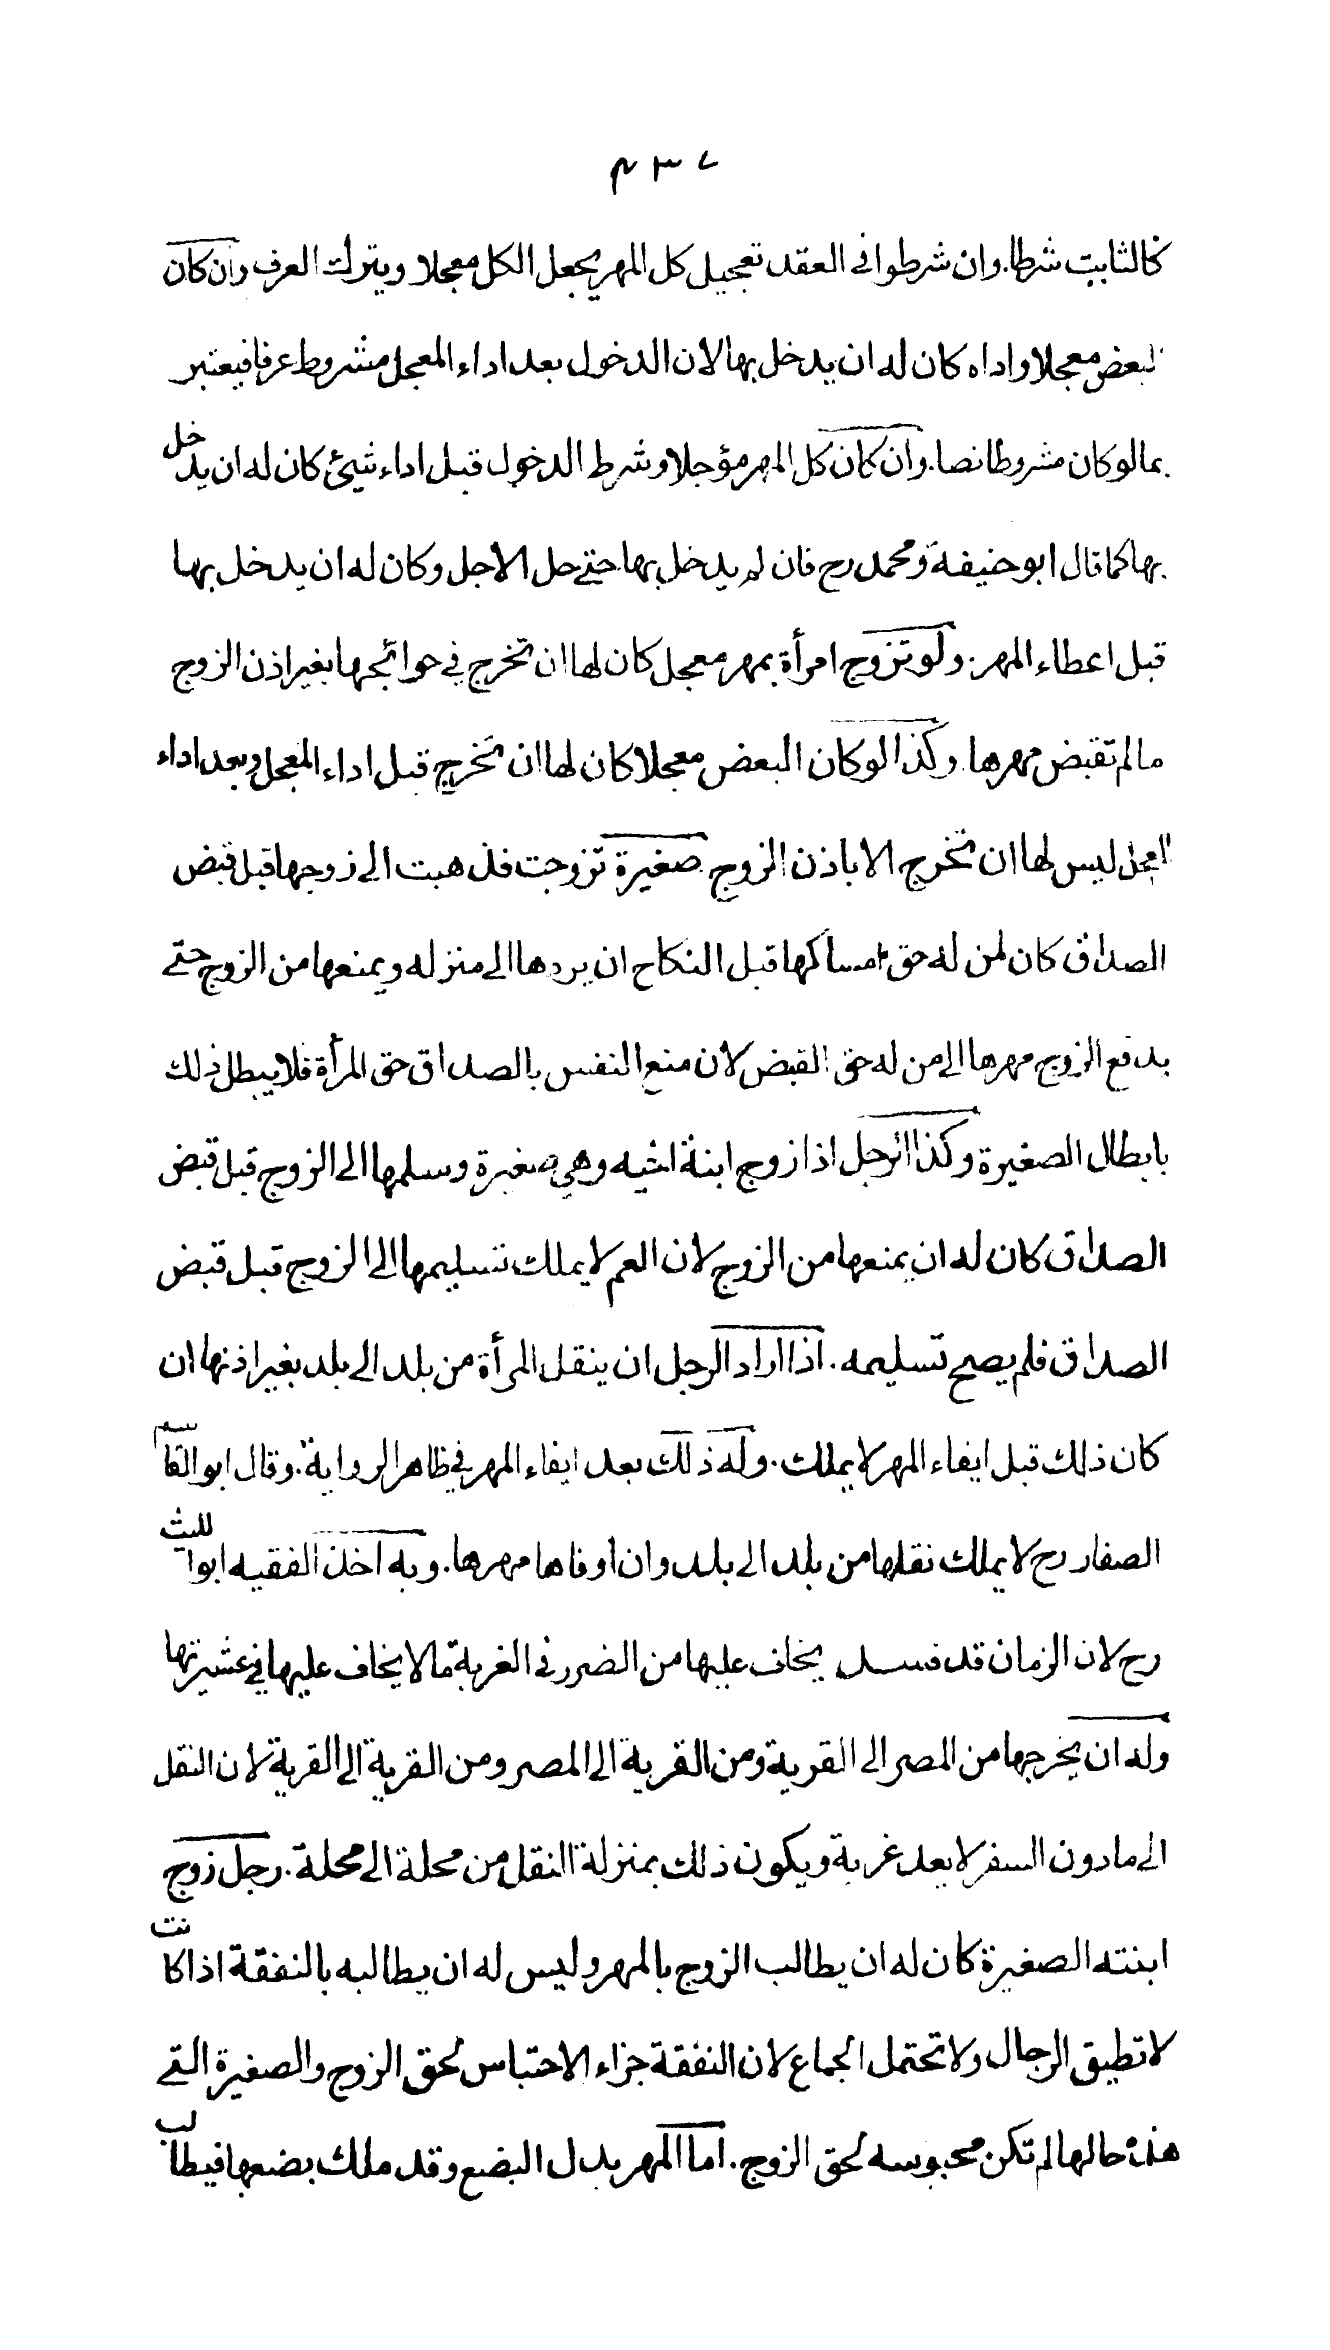 ٤٣٧
كالثابت شرطا. وان شرطوا فى العقد تعجيل كل المهر يجعل الكل معجلا ويترك العرف وان كان
البعض معجلا واداه كان له ان يدخل بها لان الدخول بعد اداء المعجل مشروط عرفا فيعتبر
بمالو كان مشروطا نصا. وان كان كل المهر مؤجلا وشرط الدخول قبل اداء شيئ كان له ان يدخل
بها كما قال ابو حنيفة ومحمد رح فان لم يدخل بها حتى حل الاجل وكان له ان يدخل بها
قبل اعطاء المهر. ولو تزوج امرأة بمهر معجل كان لها ان تخرج في حوائجها بغير اذن الزوج
مالم تقبض مهرها. وكذا لو كان البعض معجلا كان لها ان تخرج قبل اداء المعجل وبعد اداء
المعجل ليس لها ان تخرج الا باذن الزوج. صغيرة تزوجت فذهبت الى زوجها قبل قبض
الصداق كان لمن له حق امساكها قبل النكاح ان يردها الى منزله ويمنعها من الزوج حتى
يدفع الزوج مهرها الى من له حق القبض لان منع النفس بالصداق حق المرأة فلا يبطل ذلك
بابطال الصغيرة وكذا الرجل اذا زوج ابنة اخيه وهي صغيرة وسلمها الى الزوج قبل قبض
الصداق كان له ان يمنعها من الزوج لان العم لا يملك تسليمها الى الزوج قبل قبض
الصداق فلم يصح تسليمه. اذا اراد الرجل ان ينقل المرأة من بلد الى بلد بغير اذنها ان
كان ذلك قبل ايفاء المهر لا يملك. وله ذلك بعد ايفاء المهر في ظاهر الرواية. وقال ابو القاسم
الصفار رح لا يملك نقلها من بلد الى بلد وان اوفاها مهرها. وبه اخذ الفقيه ابو الليث
رح لان الزمان قد فسد يخاف عليها من الضرر فى الغربة مالا يخاف عليها في عشيرتها
وله ان يخرجها من المصر الى القرية ومن القرية الى المصر ومن القرية الى القرية لان النقل
الى مادون السفر لا يعد غربة ويكون ذلك بمنزلة النقل من محلة الى محلة. رجل زوج
ابنته الصغيرة كان له ان يطالب الزوج بالمهر وليس له ان يطالبه بالنفقة اذا كانت
لا تطيق الرجال ولا تحتمل الجماع لان النفقة جزاء الاحتباس لحق الزوج والصغيرة التى
هذه حالها لم تكن محبوسه لحق الزوج. اما المهر بدل البضع وقد ملك بضعها فيطالب